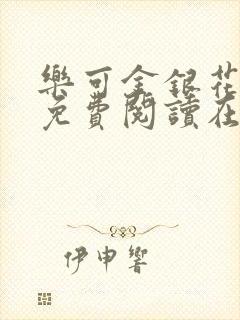 樂可金銀花
免費閱讀在
伊申響